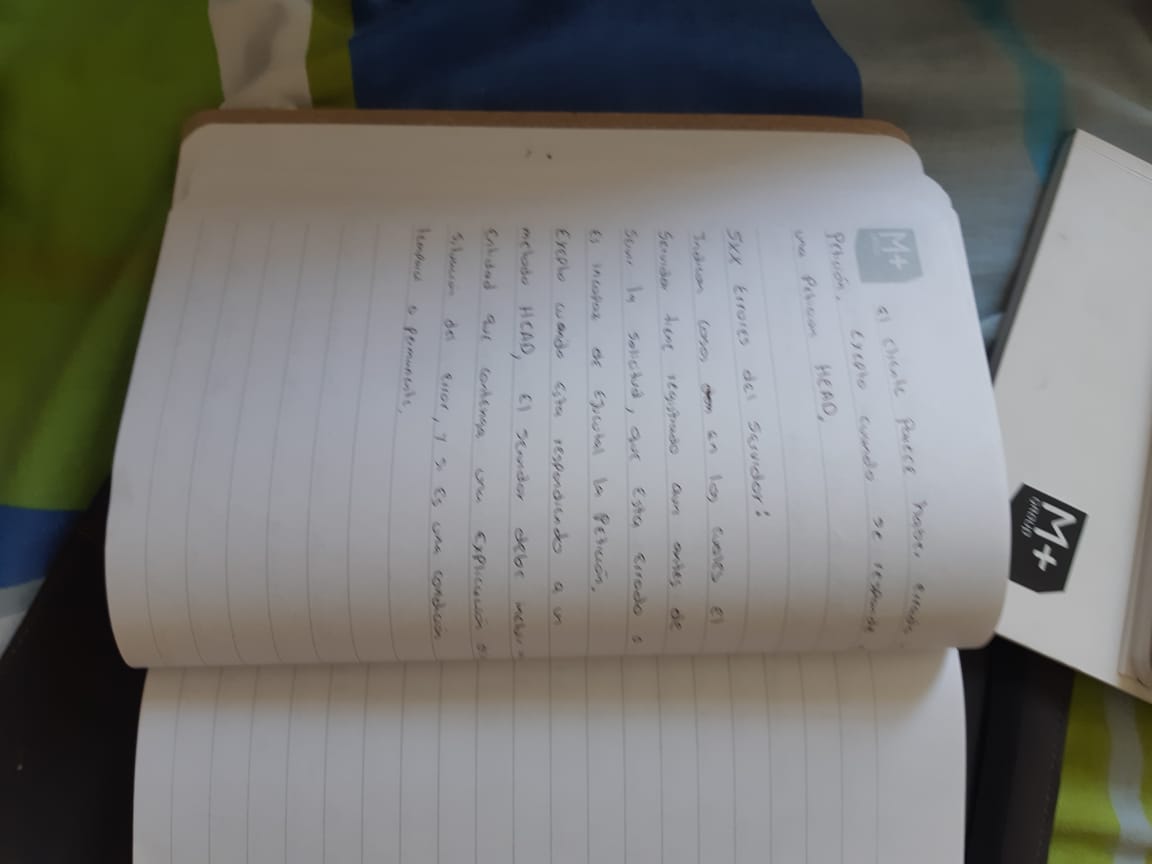 M+
el cliente parece haber errado
Petición, exepto cuando se responde
una Peticion HEAD,
5XX Errores del servidor:
Indican casos en los cuales El
Servidor tiene registrado aun antes de
Servir la solicitud, que Esta Errado o
Es incapaz de Ejecutar la Petición.
Exepto cuando esta respondiendo a un
metodo HEAD, El servidor debe incluir
Entidad que contenga una explicacion
Situacion del error, y si es una condicion
temporal o permanente,
M+
GROUP